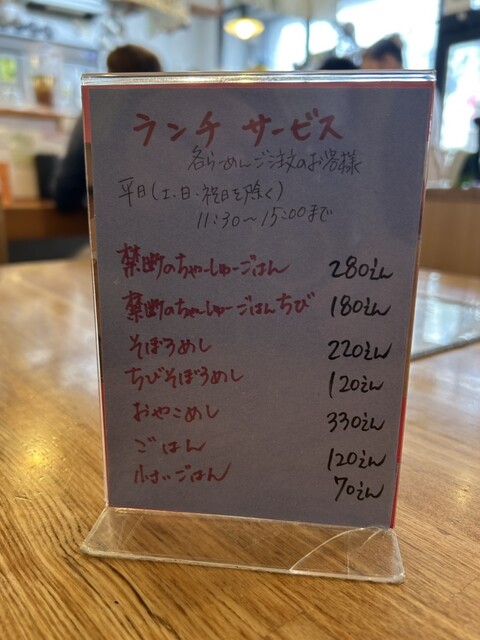 ランチ サービス
各らーめんご注文のお客様
平日(土・日・祝日を除く)
11:30〜15:00まで
禁断のちゃーしゅーごはん 280えん
禁断のちゃーしゅーごはんちび 180えん
そぼろめし 220えん
ちびそぼろめし 120えん
おやこめし 330えん
ごはん 120えん
小ごはん 70えん